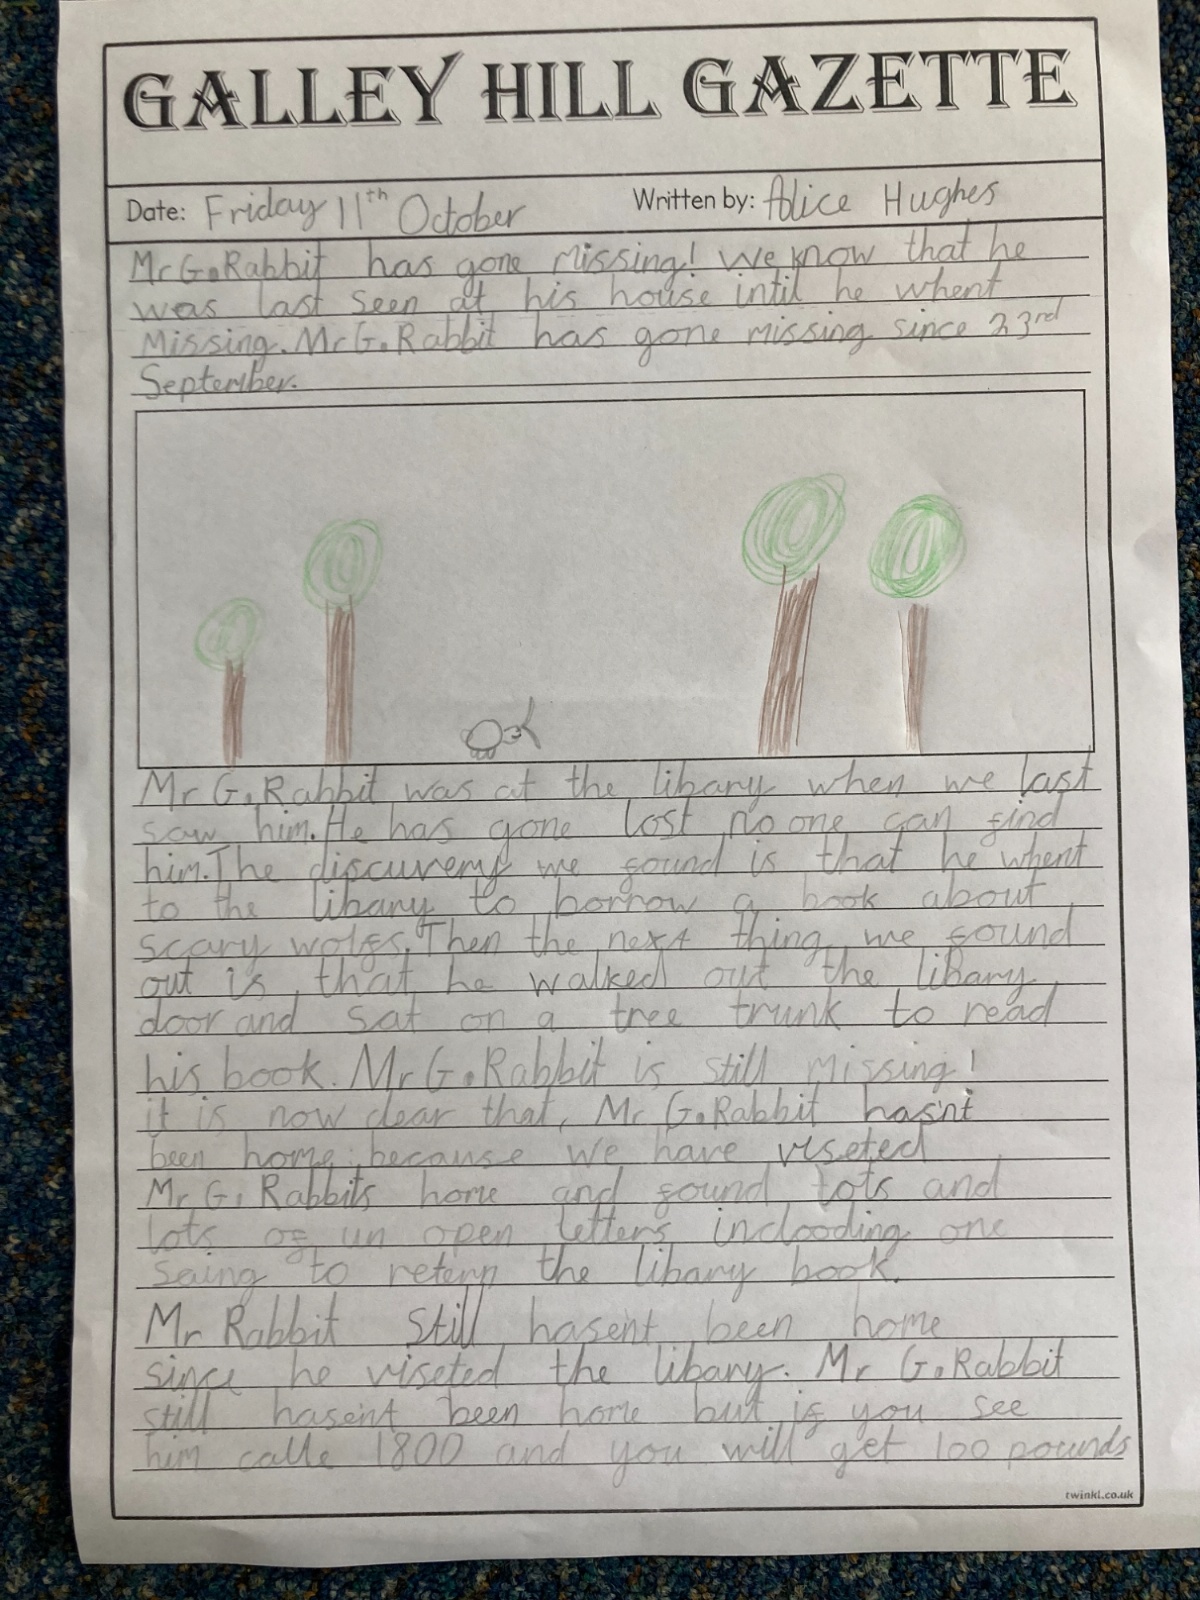 GALLEY HILL GAZETTE
Date: Friday 11th October Written by: Alice Hughes
Mr G.Rabbit has gone missing! We know that he
was last seen at his house intil he whent
Missing. Mr G.Rabbit has gone missing since 23rd
September.
Mr G.Rabbit was at the libary when we last
saw him. He has gone lost no one can find
him. The discuremy we found is that he whent
to the libary to borrow a book about
scary wolfs. Then the next thing we found
out is that he walked out the libary
door and sat on a tree trunk to read
his book. Mr G.Rabbit is still missing!
it is now clear that, Mr G.Rabbit hasn't
been home because we have viseted
Mr G. Rabbits home and found lots and
lots of un open letters inclooding one
saing to retern the libary book.
Mr Rabbit Still hasent been home
since he viseted the libary. Mr G.Rabbit
still hasent been home but if you see
him calle 1800 and you will get 100 pounds
twinkl.co.uk